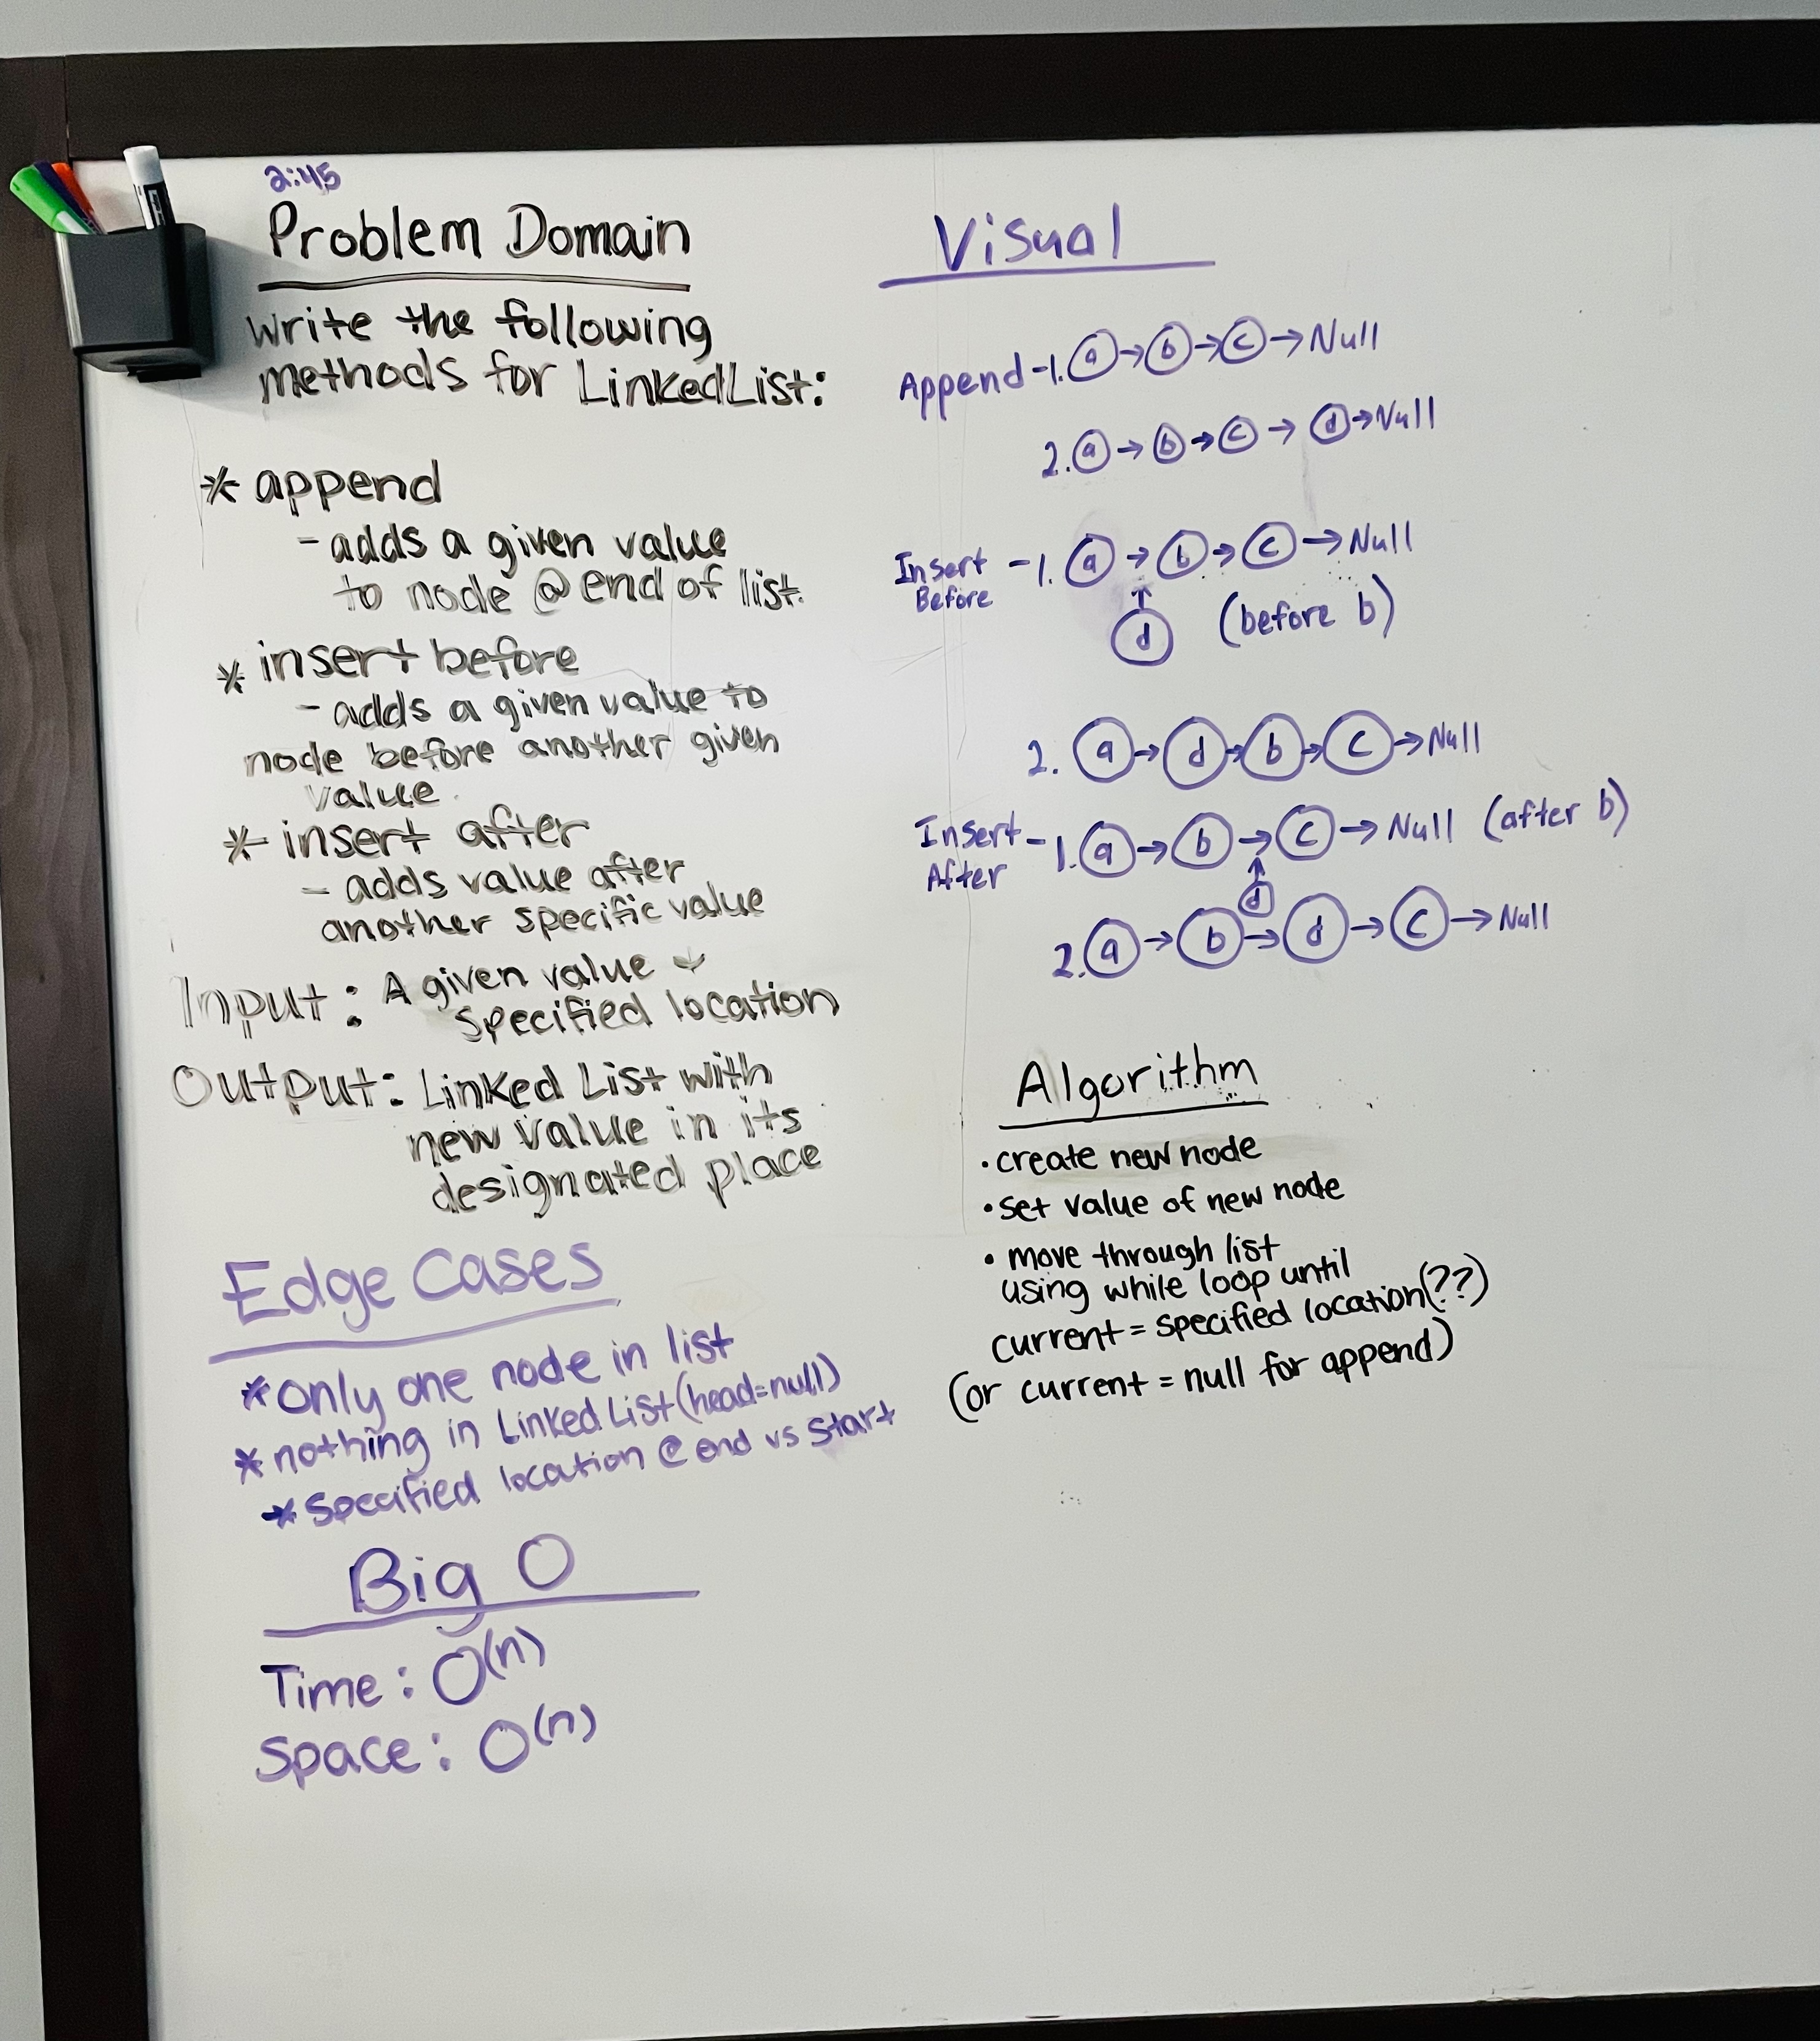 2:45
Problem Domain
write the following
methods for LinkedList:
* append
- adds a given value
to node @ end of list.
* insert before
- adds a given value to
node before another given
value.
* insert after
- adds value after
another specific value
Input: A given value +
specified location
Output: Linked List with
new value in its
designated place
Edge Cases
* only one node in list
* nothing in Linked List (head=null)
* Specified location @ end vs start
Big O
Time: O(n)
Space: O(n)
Visual
Append - 1. a → b → c → Null
2. a → b → c → d → Null
Insert Before - 1. a → b → c → Null
↑
d (before b)
2. a → d → b → c → Null
Insert After - 1. a → b → c → Null (after b)
↑
d
2. a → b → d → c → Null
Algorithm
• create new node
• set value of new node
• move through list
using while loop until
current = specified location(??)
(or current = null for append)